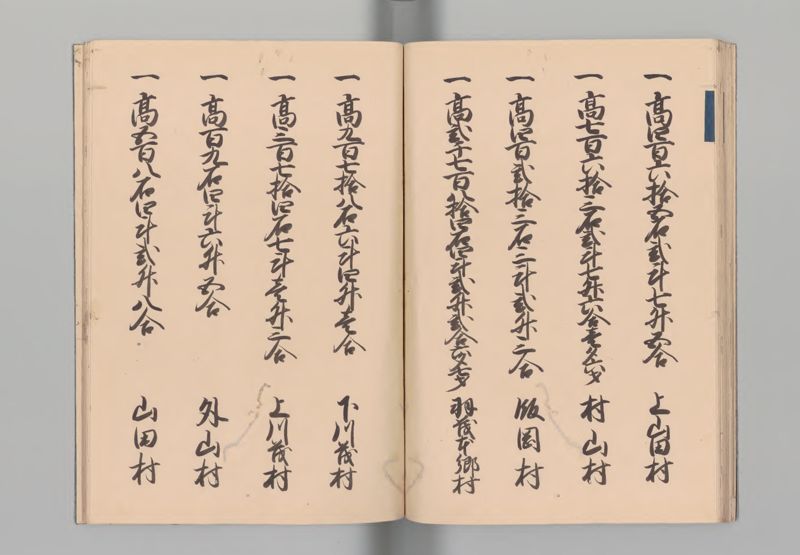 一高四百六拾五石弐斗七升五合 上山田村
一高七百六拾三石弐斗七升六合壱夕六才 村山村
一高四百弐拾三石三斗弐升三合 飯岡村
一高弐千七百八拾四石四斗弐升弐合 羽茂本郷村
一高九百七拾八石六斗四升壱合 下川茂村
一高三百七拾四石七斗壱升三合 上川茂村
一高百九石四斗六升五合 外山村
一高五百八石四斗弐升八合 山田村